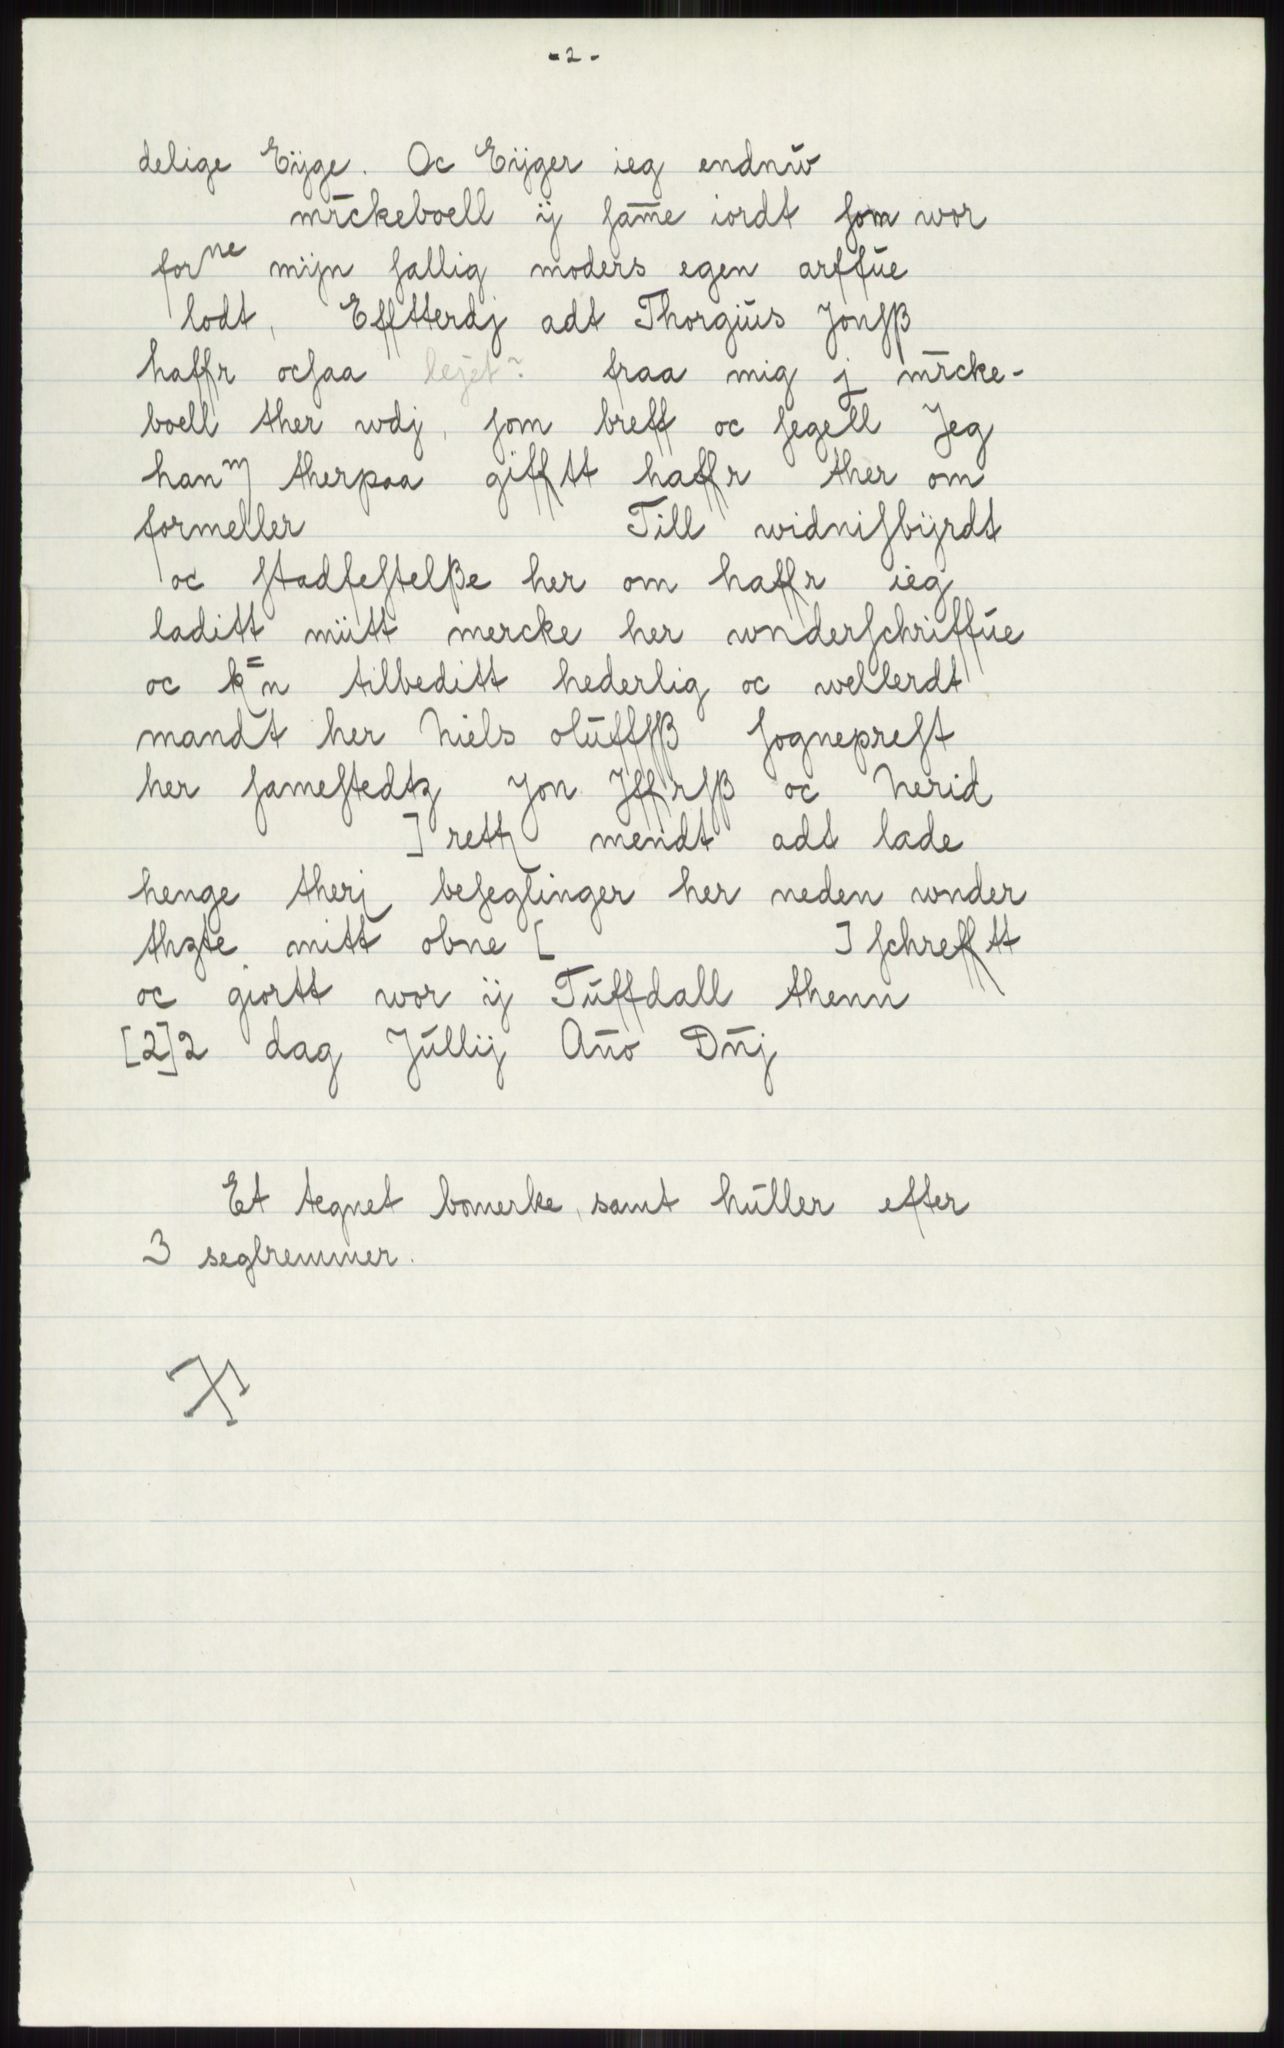 - 2 -
delige Eijge. Oc Eijger ieg endnŭ
mr̄ckeboell ij ſam̄e iordt ſom wor
forne mijn ſallig moders egen arffŭe
lodt, Effterdj adt Thorgiŭs Jonſß
haffr ocſaa lejet? fraa mig j mr̄cke-
boell ther wdj, ſom breff oc ſegell Jeg
hanm therpaa gifftt haffr ther om
formeller Till widniſbijrdt
oc ſtadfeſtelße her om haffr ieg
laditt miitt mercke her wnderſchriffŭe
oc k=n tilbeditt hederlig oc wellerdt
mandt her Niels olŭffſß ſogneprеſt
her ſameſtedtz Jon Jffrſß oc Nerid
] rettz mendt adt lade
henge therj beſeglinger her neden wnder
thzte mitt obne [ ] ſchrefftt
oc giortt wor ij Tŭffdall thenn
[2]2 dag Jŭllij An̄o Dn̄j
Et tegnet bomerke, samt hŭller efter
3 seglremmer.